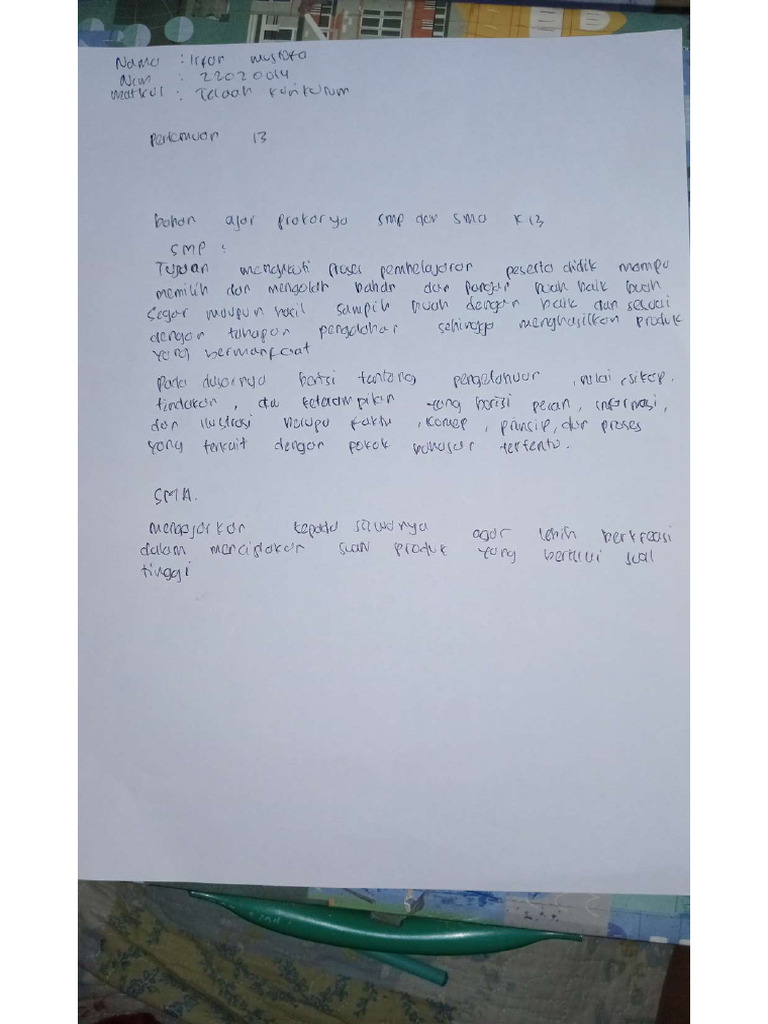 Nama : Irfan Mustofa
Nim : 22020014
Matkul : Telaah Kurikulum
Pertemuan 13
bahan ajar prakarya smp dan sma K13
SMP :
Tujuan mengikuti proses pembelajaran peserta didik mampu
memilih dan mengolah bahan dan pangan buah baik buah
segar maupun hasil sampih buah dengan baik dan sesuai
dengan tahapan pengolahan sehingga menghasilkan produk
yang bermanfaat
Pada dasarnya berisi tentang pengetahuan, nilai, sikap,
tindakan, dan keterampilan yang berisi pesan, informasi,
dan ilustrasi berupa fakta, konsep, prinsip, dan proses
yang terkait dengan pokok bahasan tertentu.
SMA.
mengajarkan kepada siswanya agar lebih berkreasi
dalam menciptakan suatu produk yang bernilai jual
tinggi